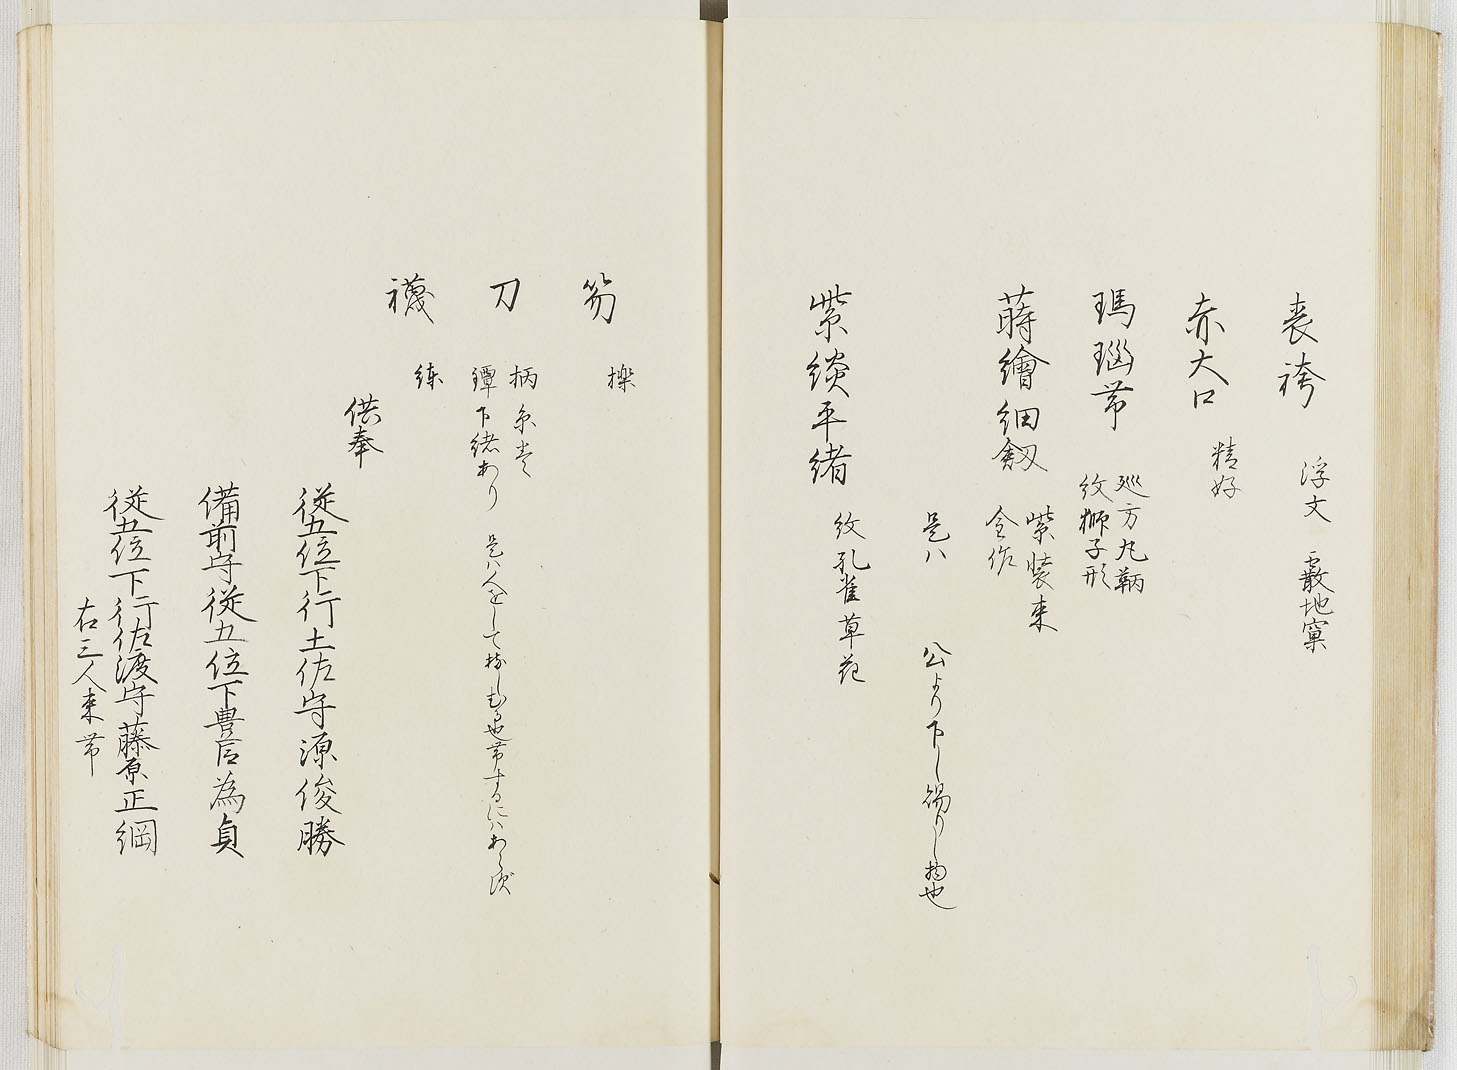 表袴 浮文 霰地窠
赤大口 精好
瑪瑙帯 巡方丸鞆
紋獅子形
蒔繪細釼 紫裝束
金作
是ハ 公より下し賜りし物也
紫緂平緒 紋孔雀草花
笏 櫟
刀 柄糸巻
鐔下緒あり 是ハ人をして持しむる也帯するにハあらす
襪 練
供奉
従五位下行土佐守源俊勝
備前守従五位下豊臣為貞
従五位下行佐渡守藤原正綱
右三人束帯